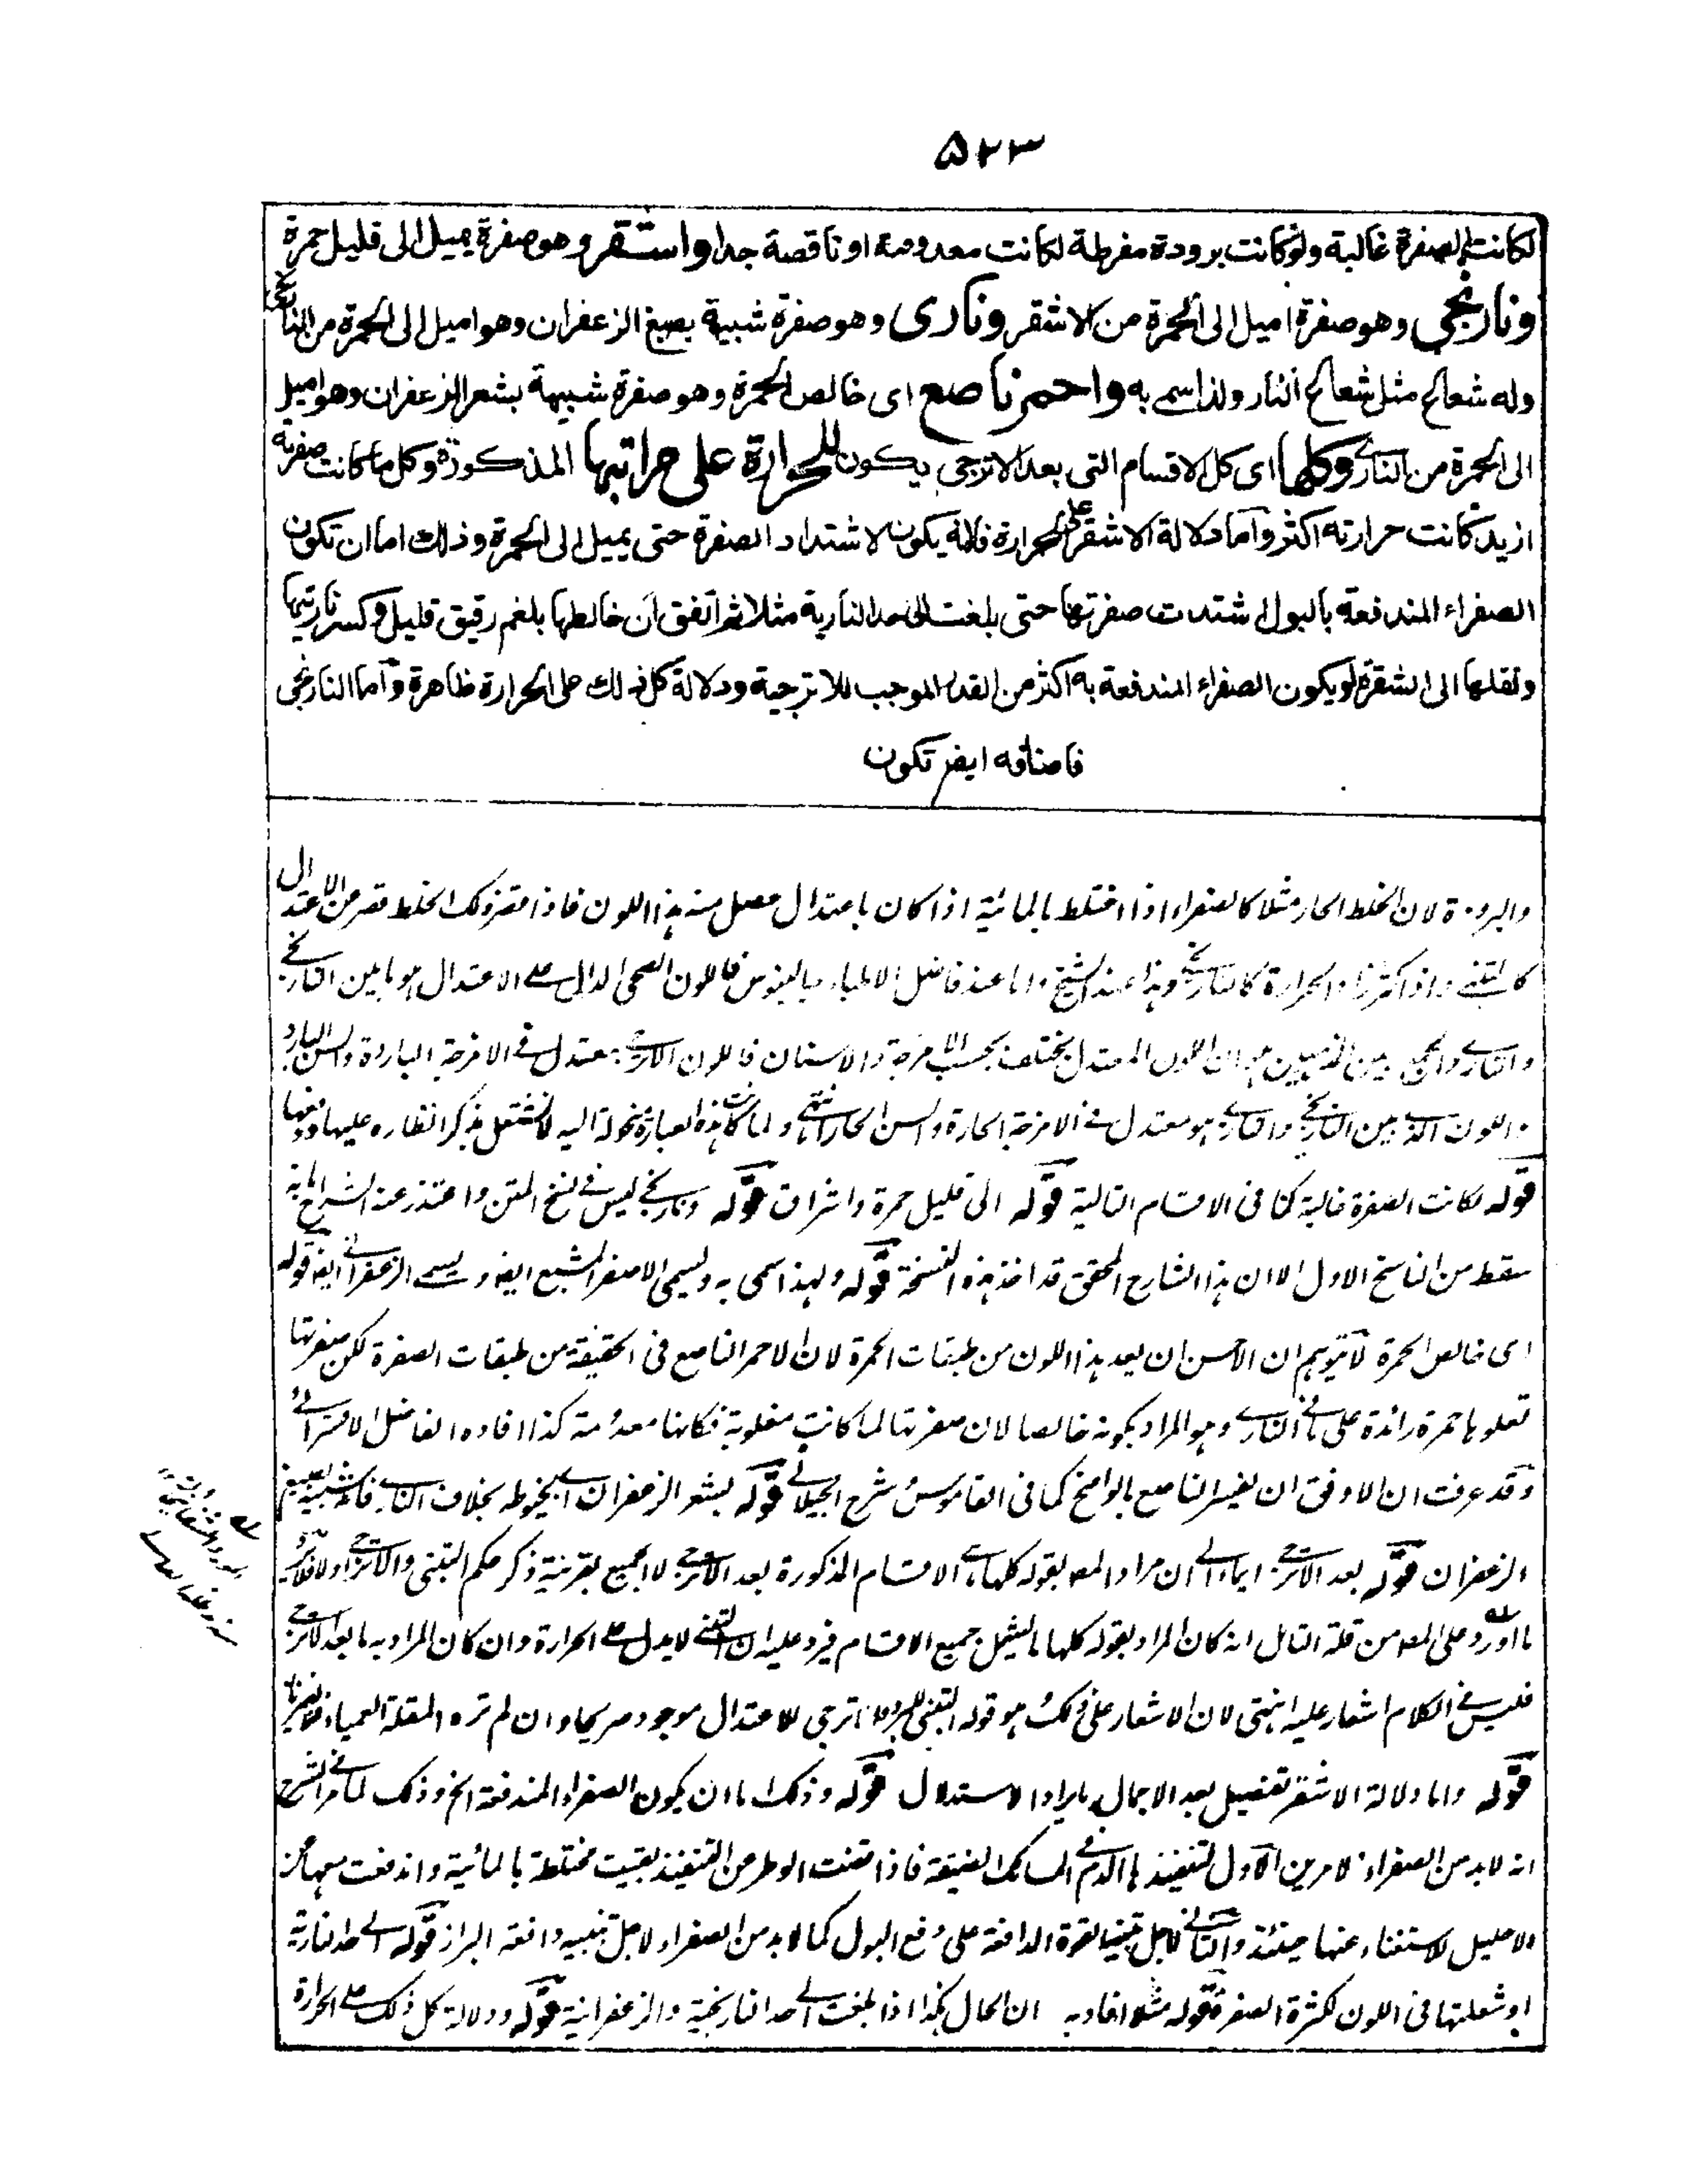 ۵۲۳
لكانت الصفرة غالبة ولو كانت برودة مفرطة لكانت معدومة او ناقصة جدا واشقر وهو صفرة يميل الى قليل حمرة
ونارنجى وهو صفرة اميل الى الحمرة من الاشقر ونارى وهو صفرة شبيهة بصبغ الزعفران وهو اميل الى الحمرة من النارنجى
وله شعاع مثل شعاع النار ولذا سمى به واحمر ناصع اى خالص الحمرة وهو صفرة شبيهة بشعر الزعفران وهو اميل
الى الحمرة من النارى وكلها اى كل الاقسام التى بعد الاترجى يكون للحرارة على مراتبها المذكورة وكل ما كانت صفرته
ازيد كانت حرارته اكثر واما دلالة الاشقر على الحرارة فلانه يكون لاشتداد الصفرة حتى يميل الى الحمرة وذلك اما ان تكون
الصفراء المندفعة بالبول اشتدت صفرتها حتى بلغت الى حد النارية مثلا ثم اتفق ان خالطها بلغم رقيق قليل وكسر ناريتها
ونقلها الى الشقرة او يكون الصفراء المندفعة به اكثر من القدر الموجب للاترجية ودلالة كل ذلك على الحرارة ظاهرة واما النارنجى
فاصنافه ايضر تكون
والبرودة لان الخلط الحار مثلا كالصفراء اذا اختلط بالمائية اذا كان باعتدال حصل منه هذا اللون فاذا قصر ذلك الخلط قصر من الاعتدال
كالتبنى واذا كثر زاد الحرارة كالنارنجى وهذا عند الشيخ واما عند فاضل الاطباء جالينوس فاللون الصحى الدال على الاعتدال هو ما بين النارنجى
والنارى والجمع بين المذهبين هو ان اللون المعتدل يختلف بحسب الامزجة والاسنان فاللون الاترجى معتدل فى الامزجة الباردة والسن البارد
واللون الذى بين النارنجى والنارى هو معتدل فى الامزجة الحارة والسن الحار انتهى ولما كانت هذه العبارة منحولة اليه لا نشتغل بذكر انظاره عليها ودفعها
قوله لكانت الصفرة غالبة كما فى الاقسام التالية قوله الى قليل حمرة واشراق قوله ونارنجى ليس فى نسخ المتن واعتذر عنه الشراح بانه
سقط من الناسخ الاول الا ان هذا الشارح المحقق قد اخذ هذه النسخة قوله ولهذا سمى به ويسمى الاصفر المشبع ايضا ويسمى الزعفرانى ايضا قوله
اى خالص الحمرة لا يتوهم ان الاحسن ان يعد هذا اللون من طبقات الحمرة لان الاحمر الناصع فى الحقيقة من طبقات الصفرة لكن صفرتها
تعلوها حمرة زائدة على ما فى النارى وهو المراد بكونه خالصا لان صفرتها لما كانت مغلوبة فكانها معدومة كذا افاده الفاضل الاقسرائى
وقد عرفت ان الاوفق ان يفسر الناصع بالواضح كما فى القاموس شرح الجيلانى قوله بشعر الزعفران اى بخيوطه بخلاف النارى فانه شبيه بصبغ
الزعفران قوله بعد الاترجى ايماء الى ان مراد المصر بقوله كلها اى الاقسام المذكورة بعد الاترجى لا الجميع بقرينة ذكر حكم التبنى والاترجى اولا فلا يرد
ما اورد على المصر من قلة التامل انه كان المراد بقوله كلها ما يشمل جميع الاقسام فيرد عليه ان التبنى لا يدل على الحرارة وان كان المراد به ما بعد الاترجى
فليس فى الكلام اشعار عليه انتهى لان الاشعار على ذلك هو قوله التبنى للبرد والاترجى للاعتدال موجود صريحا وان لم تره المقلة العمياء
قوله واما دلالة الاشقر تفصيل بعد الاجمال بايراد الاستدلال قوله وذلك اما ان يكون الصفراء المندفعة الخ وذلك لما مر فى الشرح
انه لا بد من الصفراء لامرين الاول لتنفيذها الدم فى المسالك الضيقة فاذا قضت الوطر من التنفيذ بقيت مختلطة بالمائية واندفعت معها من
الاحليل للاستغناء عنها حينئذ والثانى لاجل تنبيه القوة الدافعة على دفع البول كما لا بد من الصفراء لاجل تنبيه دافعة البراز قوله الى حد النارية
او شعلتها فى اللون لكثرة الصفرة قوله مثلا افاد به ان الحال هكذا اذا بلغت الى حد النارنجية والزعفرانية قوله ودلالة كل ذلك على الحرارة